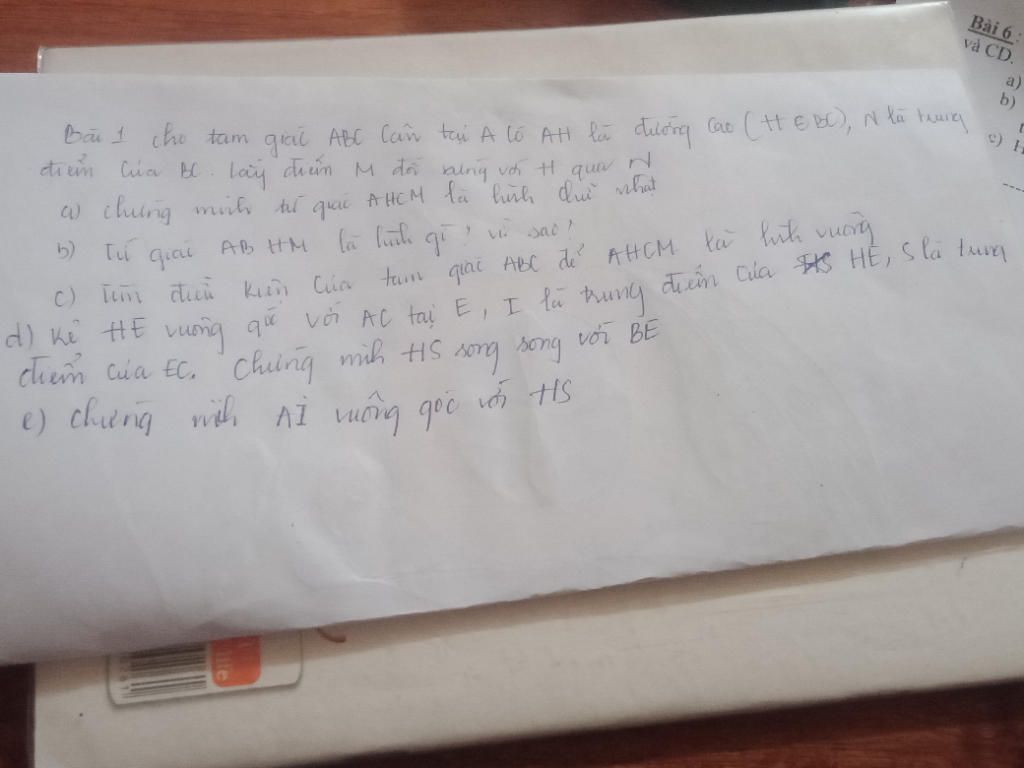 Bài 1 cho tam giác ABC cân tại A có AH là đường cao (H ∈ BC), N là trung
điểm của BC. lấy điểm M đối xứng với H qua N
a) chứng minh tứ giác AHCM là hình chữ nhật
b) Tứ giác ABHM là hình gì? vì sao?
c) Tìm điều kiện của tam giác ABC để AHCM là hình vuông
d) Kẻ HE vuông góc với AC tại E, I là trung điểm của HE, S là trung
điểm của EC. Chứng mih HS song song với BE
e) chứng mih AI vuông góc với HS
Bài 6:
và CD.
a)
b)
c)